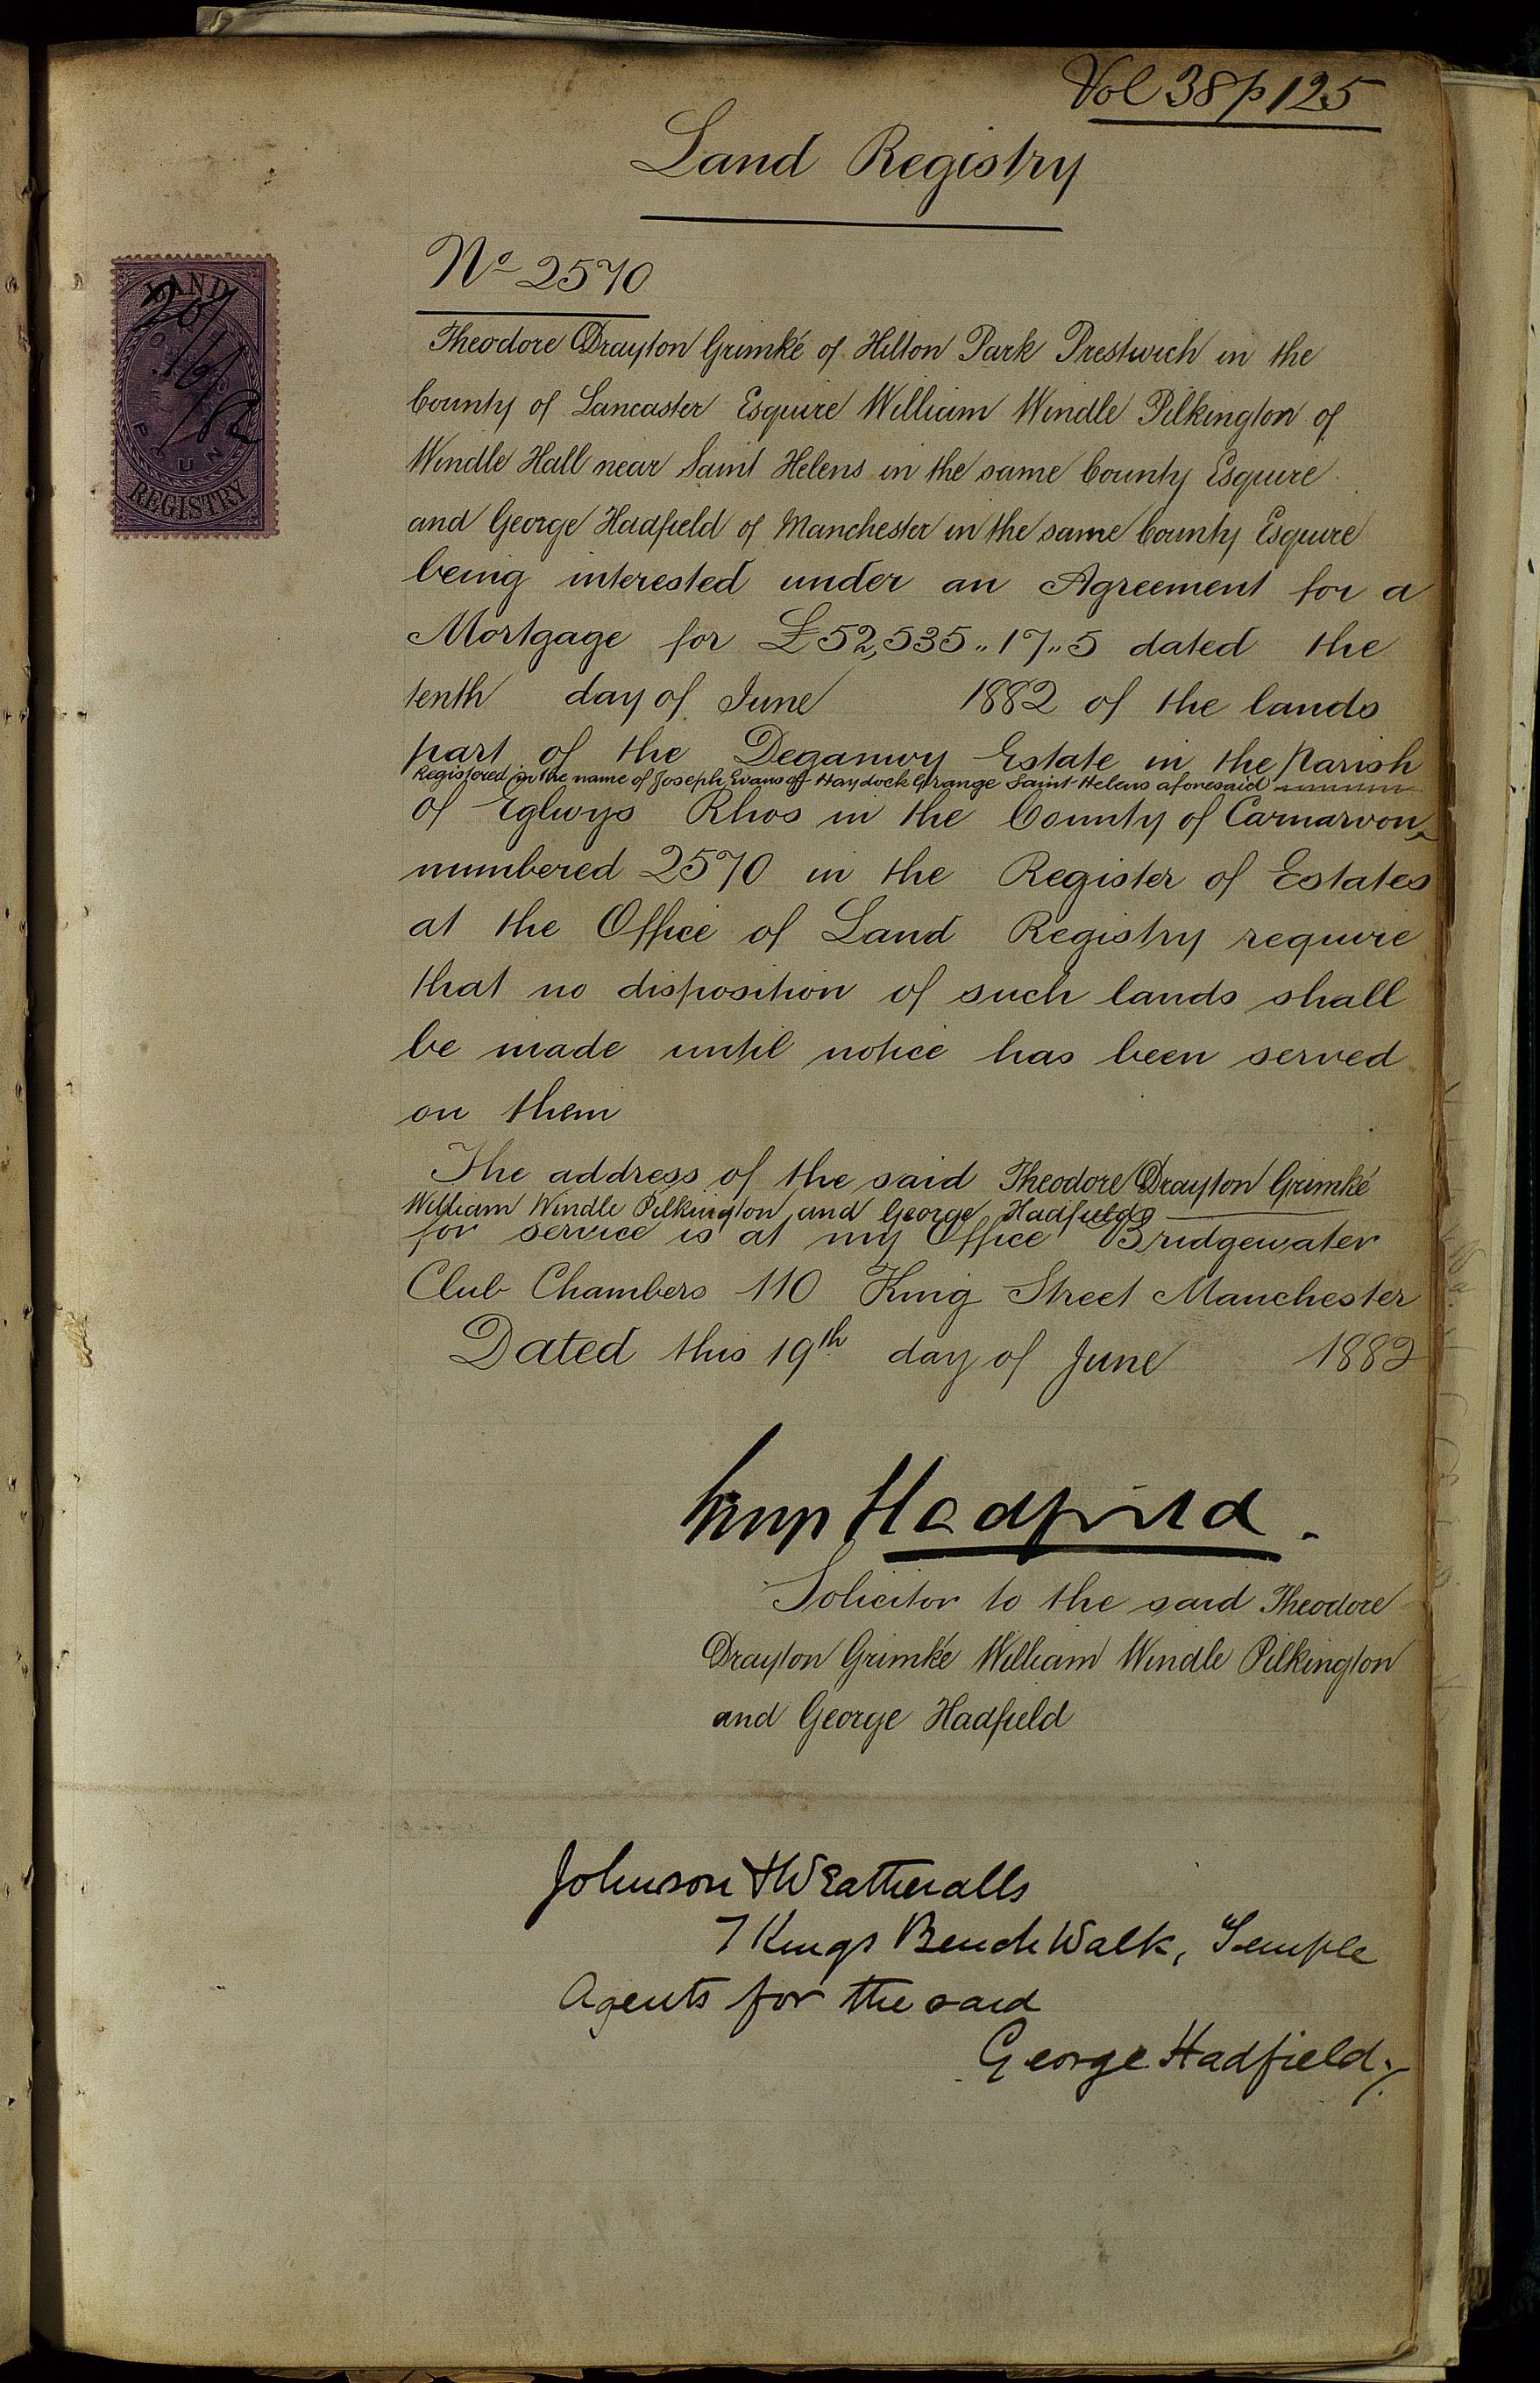 Vol 38 p 125
Land Registry
No 2570
LAND
20/6/82
POUND
REGISTRY
Theodore Drayton Grimké of Hilton Park Prestwich in the
County of Lancaster Esquire William Windle Pilkington of
Windle Hall near Saint Helens in the same County Esquire
and George Hadfield of Manchester in the same County Esquire
being interested under an Agreement for a
Mortgage for £52,535,,17,,5 dated the
tenth day of June 1882 of the lands
part of the Deganwy Estate in the Parish
Registered in the name of Joseph Evans of Haydock Grange Saint Helens aforesaid
of Eglwys Rhos in the County of Carnarvon
numbered 2570 in the Register of Estates
at the Office of Land Registry require
that no disposition of such lands shall
be made until notice has been served
on them
The address of the said Theodore Drayton Grimké
William Windle Pilkington and George Hadfield
for service is at my Office Bridgewater
Club Chambers 110 King Street Manchester
Dated this 19th day of June 1882
Hadfield.
Solicitor to the said Theodore
Drayton Grimké William Windle Pilkington
and George Hadfield
Johnson & Weatheralls
7 Kings Bench Walk, Temple
Agents for the said
George Hadfield